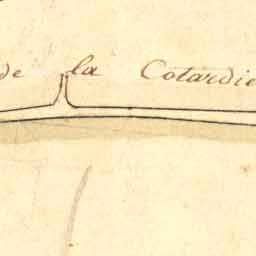 de la Cotardie